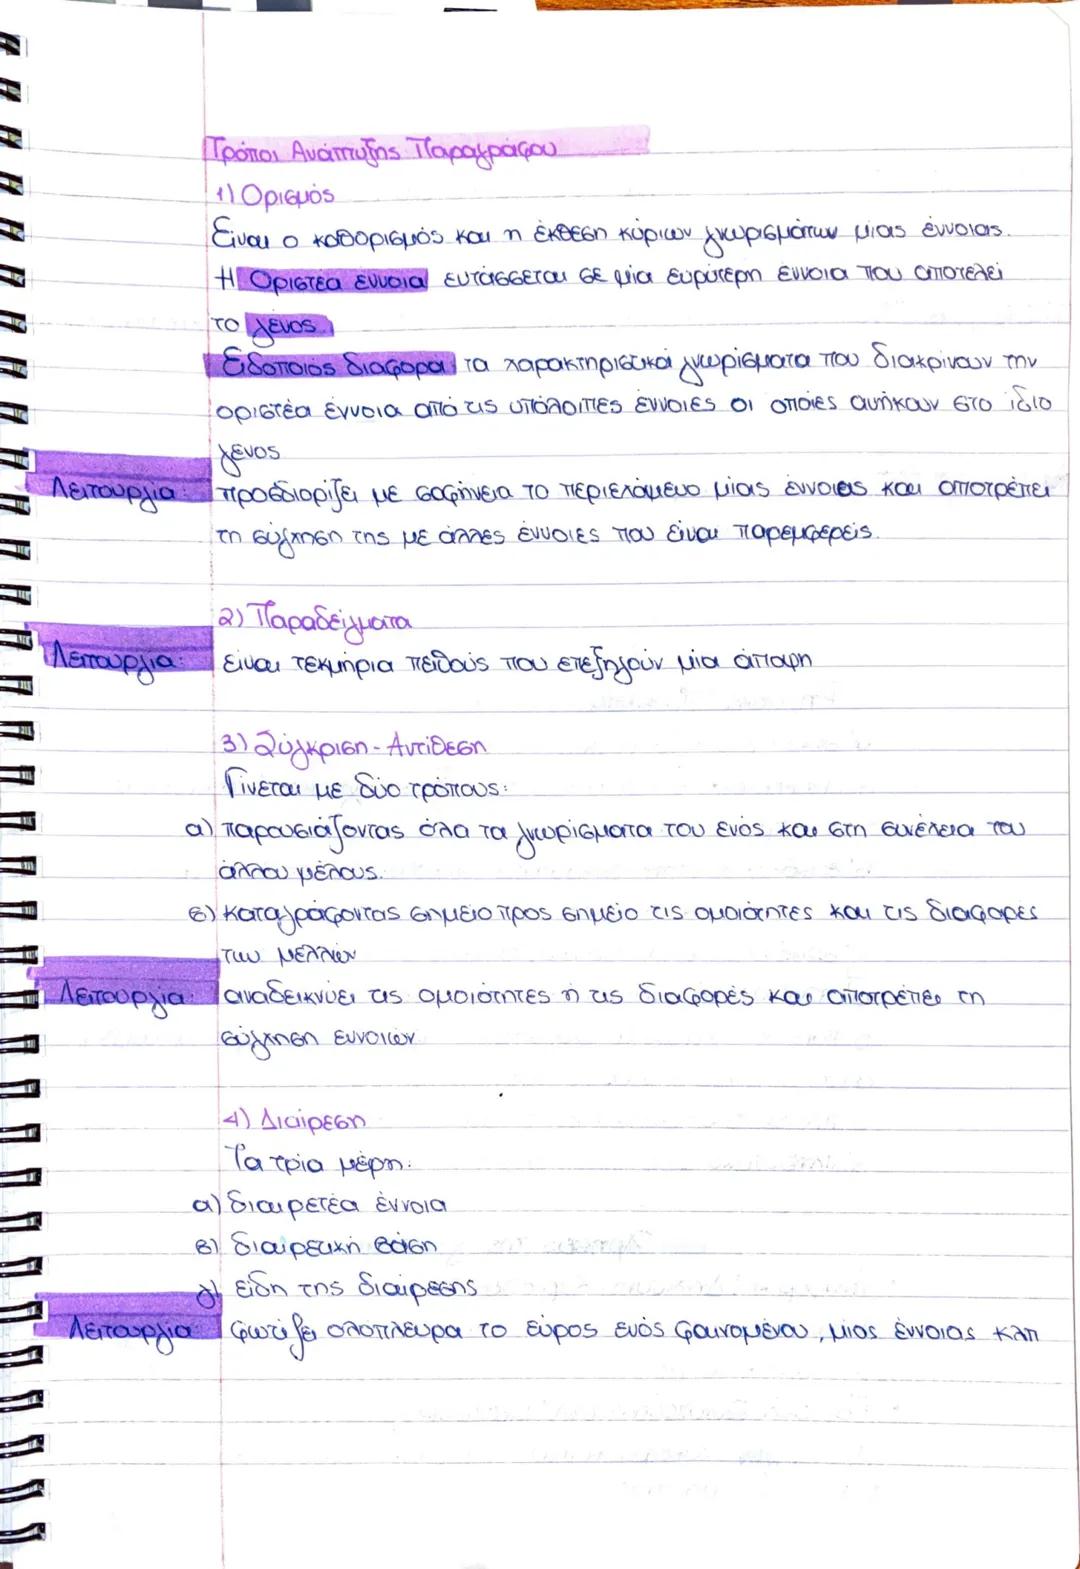 Τρόποι Ανάπτυξης Παραγράφου
1) Ορισμός
Είναι ο καθορισμός και η έκθεση κύριων γνωρισμάτων μίας έννοιας.
Η Οριστέα έννοια εντάσσεται σε μία ευρύτερη έννοια που αποτελεί
το γένος.
Ειδοποιός διαφορά τα χαρακτηριστικά γνωρίσματα που διακρίνουν την
οριστέα έννοια από τις υπόλοιπες έννοιες οι οποίες ανήκουν στο ίδιο
γένος
Λειτουργία: προσδιορίζει με σαφήνεια το περιεχόμενο μίας έννοιας και αποτρέπει
τη σύγχηση της με άλλες έννοιες που είναι παρεμφερείς.
2) Παραδείγματα
Λειτουργία: είναι τεκμήρια πειθούς που επεξηγούν μία άποψη
3) Σύγκριση - Αντίθεση
Γίνεται με δύο τρόπους:
α) παρουσιάζοντας όλα τα γνωρίσματα του ενός και στη συνέχεια του
άλλου μέλους.
β) καταγράφοντας σημείο προς σημείο τις ομοιότητες και τις διαφορές
των μελλών
Λειτουργία: αναδεικνύει τις ομοιότητες ή τις διαφορές και αποτρέπει τη
σύγχηση εννοιών
4) Διαίρεση
Τα τρία μέρη:
α) διαιρετέα έννοια
β) διαιρετική βάση
γ) είδη της διαίρεσης
Λειτουργία: φωτίζει ολόπλευρα το εύρος ενός φαινομένου, μιας έννοιας κλπ